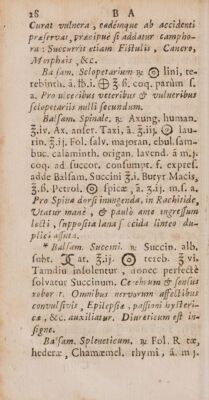 28 B A
Curat vulnera, eadémque ab accidenti
præservat, præcipue si addatur campho-
ra: Succurrit etiam Fistulis, Cancro,
Morphæis, &c.
Balsam. Sclopetarium ℞ 🜚 lini, te-
rebinth. ā. ℔.i. 🜨 ℥ ß. coq. parùm s.
a. Pro ulceribus veteribus & vulneribus
sclopetariis nulli secundum.
Balsam. Spinale. ℞ Axung. human.
℥.iv. Ax. anser. Taxi, ā. ℥.iij. 🜚 lau-
rin. ℥.ij. Fol. salv. majoran. ebul. sam-
buc. calaminth. origan. lavend. ā m.j.
coq. ad succor. consumpt. f. expres.
adde Balsam. Succini ℥.i. Butyr Macis,
℥.ß. Petrol. 🜚 spicæ, ā. ʒ.ij. m. s. a.
Pro Spina dorsi inungenda, in Rachitide,
Utatur manè, & paulò ante ingressum
lecti, supposita lana succida linteo du-
plici assuta.
* Balsam. Succini. ℞ Succin. alb.
subt. at. ℥.ij. 🜚 tereb. ℥ vi.
Tamdiu insolentur, donec perfectè
solvatur Succinum. Cerebrum & sensus
robor t. Omnibus nervorum affectibus
convulsivis, Epilepsiæ, passioni hysteri-
cæ, &c. auxiliatur. Diureticum est in-
signe.
Balsam. Spleneticum. ℞ Fol. R tæ,
hederæ, Chamæmel. rhymi, ā. m j.